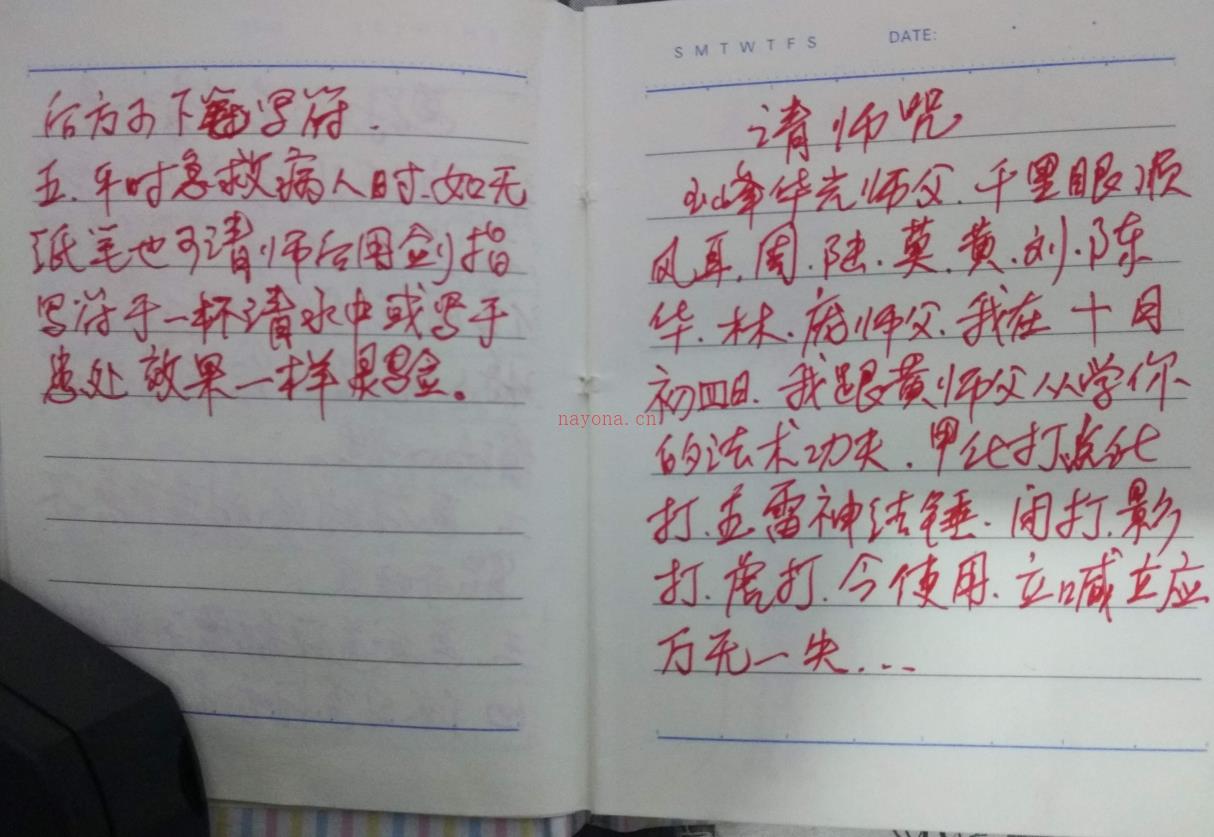 后方可下笔写符.
五.平时急救病人时.如无
纸笔也可请师后用剑指
写符于一杯清水中或写于
患处效果一样灵验。
S M T W T F S DATE:
请师咒
峰华光师父.千里眼顺
风耳.周.陆.莫.黄.刘.陈
华.林.府师父.我在十月
初四日.我跟黄师父从学你
的法术功夫.甲化打.点化
打.五雷神结锤.闭打.影
打.虎打.今使用.立喊立应
万无一失...
nayona.cn